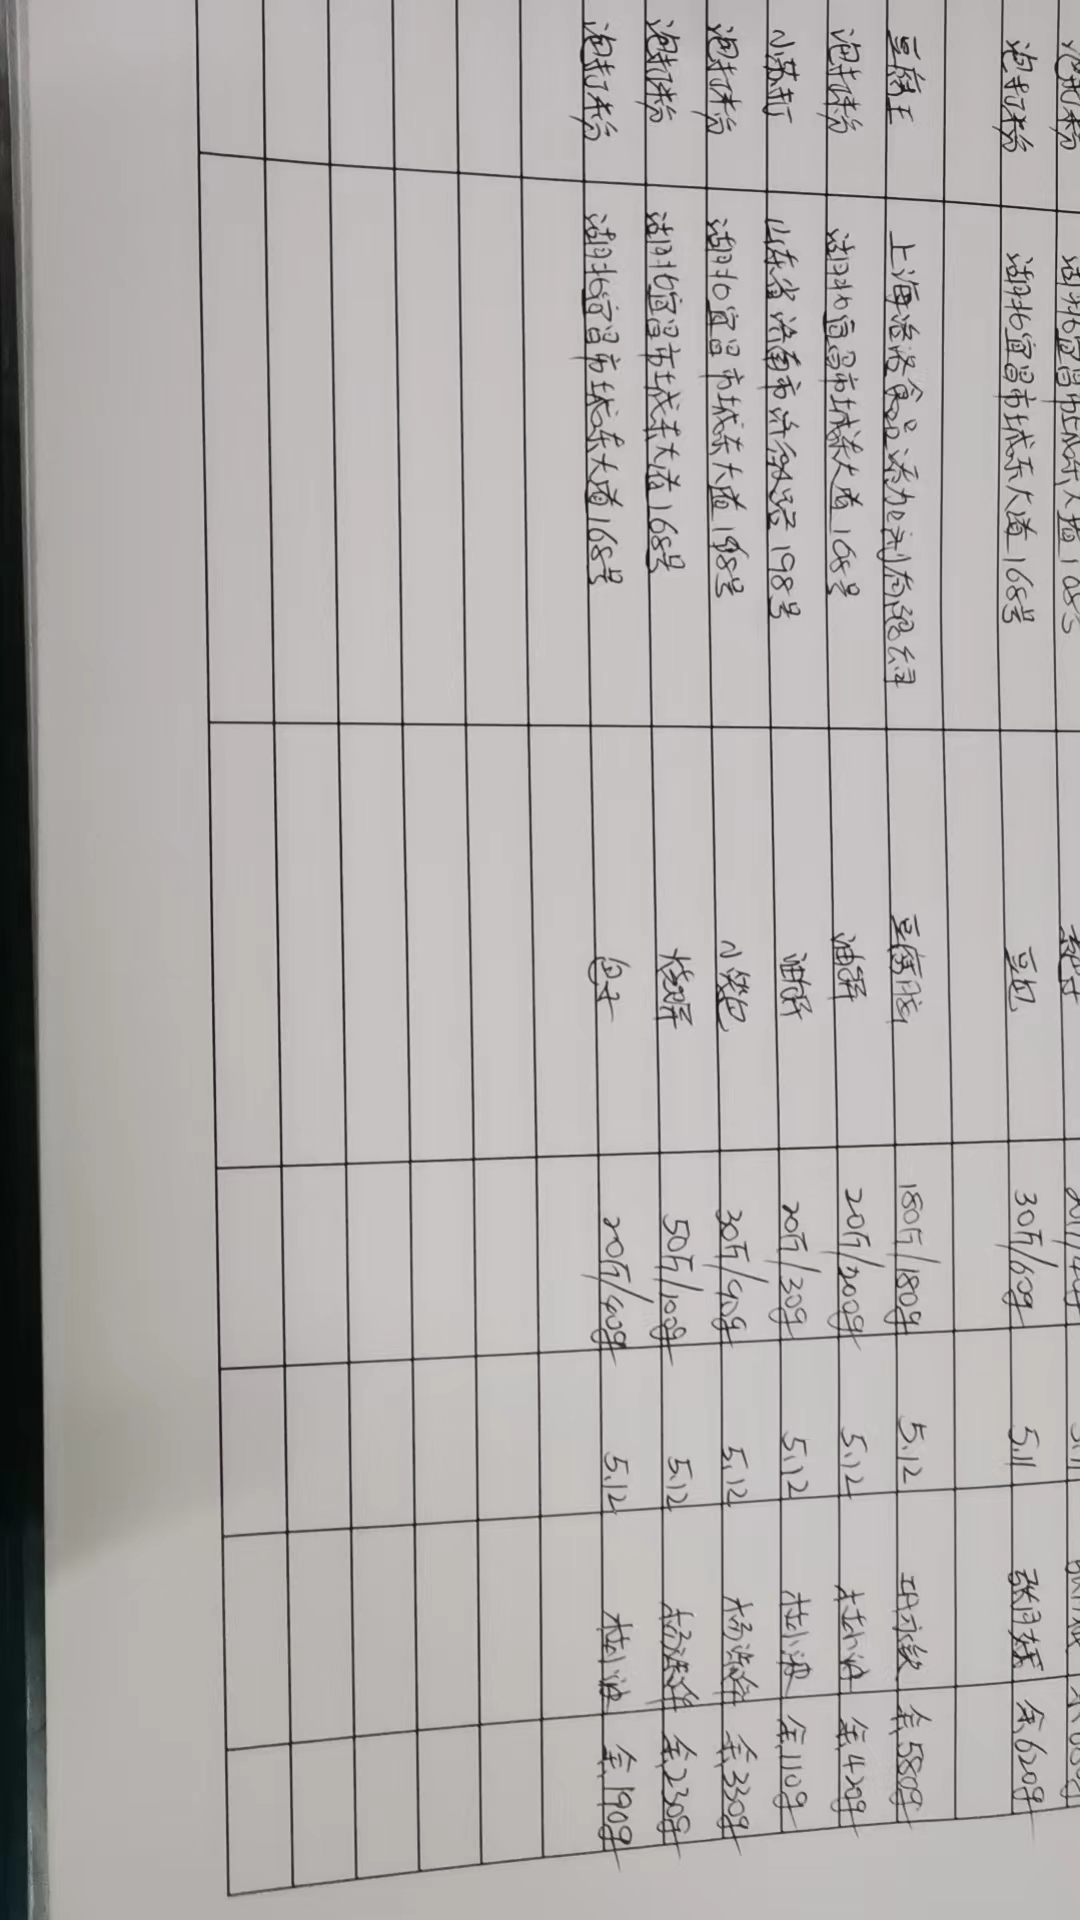 泡打粉 湖北宜昌市城东大道168号
泡打粉 湖北宜昌市城东大道168号 豆包 30斤/60g 5.11 余620g
豆腐王 上海 食品添加剂有限公司 豆腐脑 180斤/180g 5.12 余580g
泡打粉 湖北宜昌市城东大道168号 油饼 20斤/200g 5.12 杜小波 余420g
小苏打 山东省济南市 198号 油饼 20斤/30g 5.12 杜小波 余110g
泡打粉 湖北宜昌市城东大道198号 小笼包 30斤/90g 5.12 余330g
泡打粉 湖北宜昌市城东大道168号 烧饼 50斤/100g 5.12 余230g
泡打粉 湖北宜昌市城东大道168号 包子 20斤/40g 5.12 杜小波 余190g